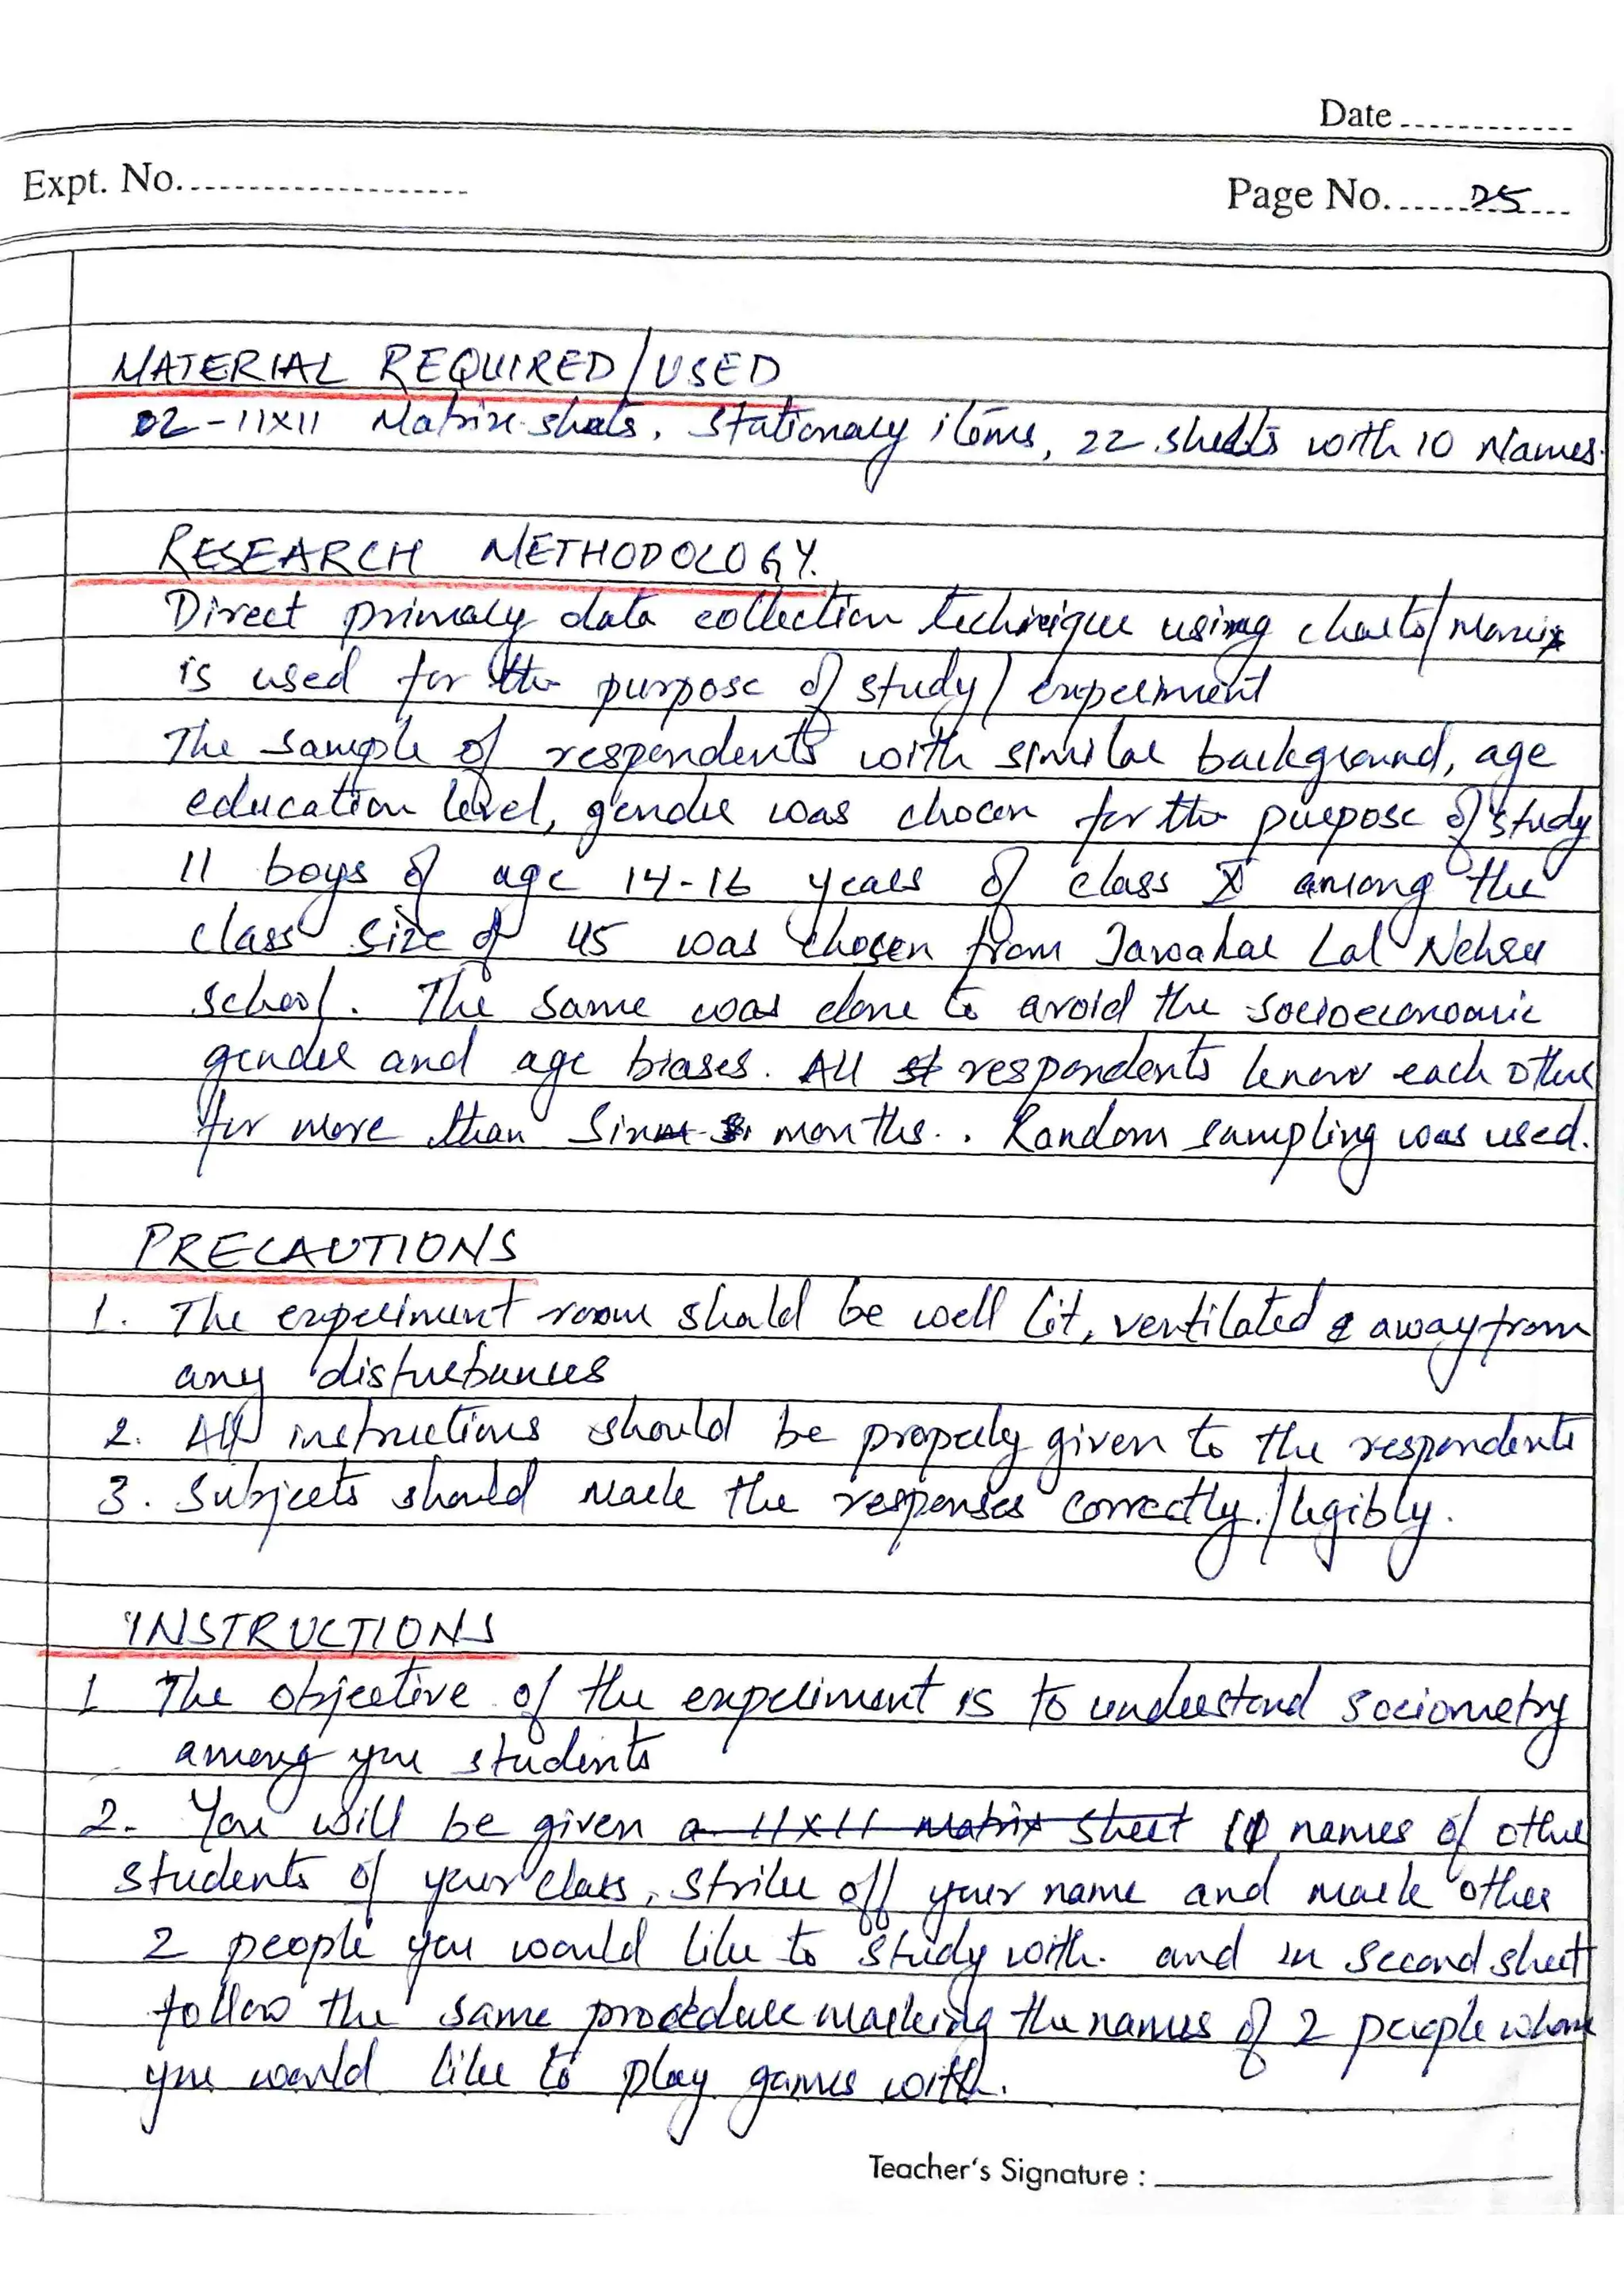 Date
Expt. No.
Page No. 25
MATERIAL REQUIRED/USED
02-11X11 Matrix sheets, Stationary items, 22 sheets with 10 Names.
RESEARCH METHODOLOGY.
Direct primary data collection technique using charts/
is used for the purpose of study/experiment
The sample of respondents with similar background, age
education level, gender was chosen for the purpose of study
11 boys of age 14-16 years of class X among the
class size of 45 was chosen from Jawahar Lal Nehru
school. The same was done to avoid the socioeconomic
gender and age biases. All respondents know each other
for more than months. . Random sampling was used.
PRECAUTIONS
1. The experiment room should be well lit, ventilated & away from
any disturbances
2. All instructions should be properly given to the respondents
3. Subjects should mark the responses correctly./legibly.
INSTRUCTIONS
1 The objective of the experiment is to understand sociometry
among you students
2. You will be given a 11X11 matrix sheet names of other
students of your class, strike off your name and mark other
2 people you would like to study with. and in second sheet
follow the same procedure marking the names of 2 people whom
you would like to play games with.
Teacher's Signature :